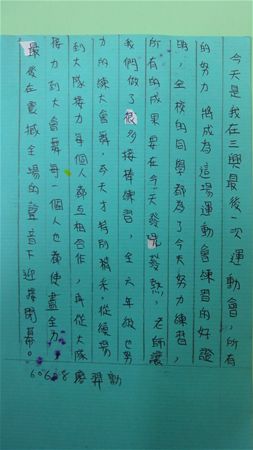 今天是我在三興最後一次運動會，所有
的努力將成為這場運動會練習的好證
明，全校的同學都為了今天努力練習，
所有的成果要在今天發光發熱，老師讓
我們做了很多接棒練習，全六年級也努
力的練大會舞，今天才特別精采，從
到大隊接力每個人都互相合作，再從大隊
接力到大會舞每一個人也都使盡全力，
最後在震撼全場的聲音下迎接閉幕。
廖羿勛